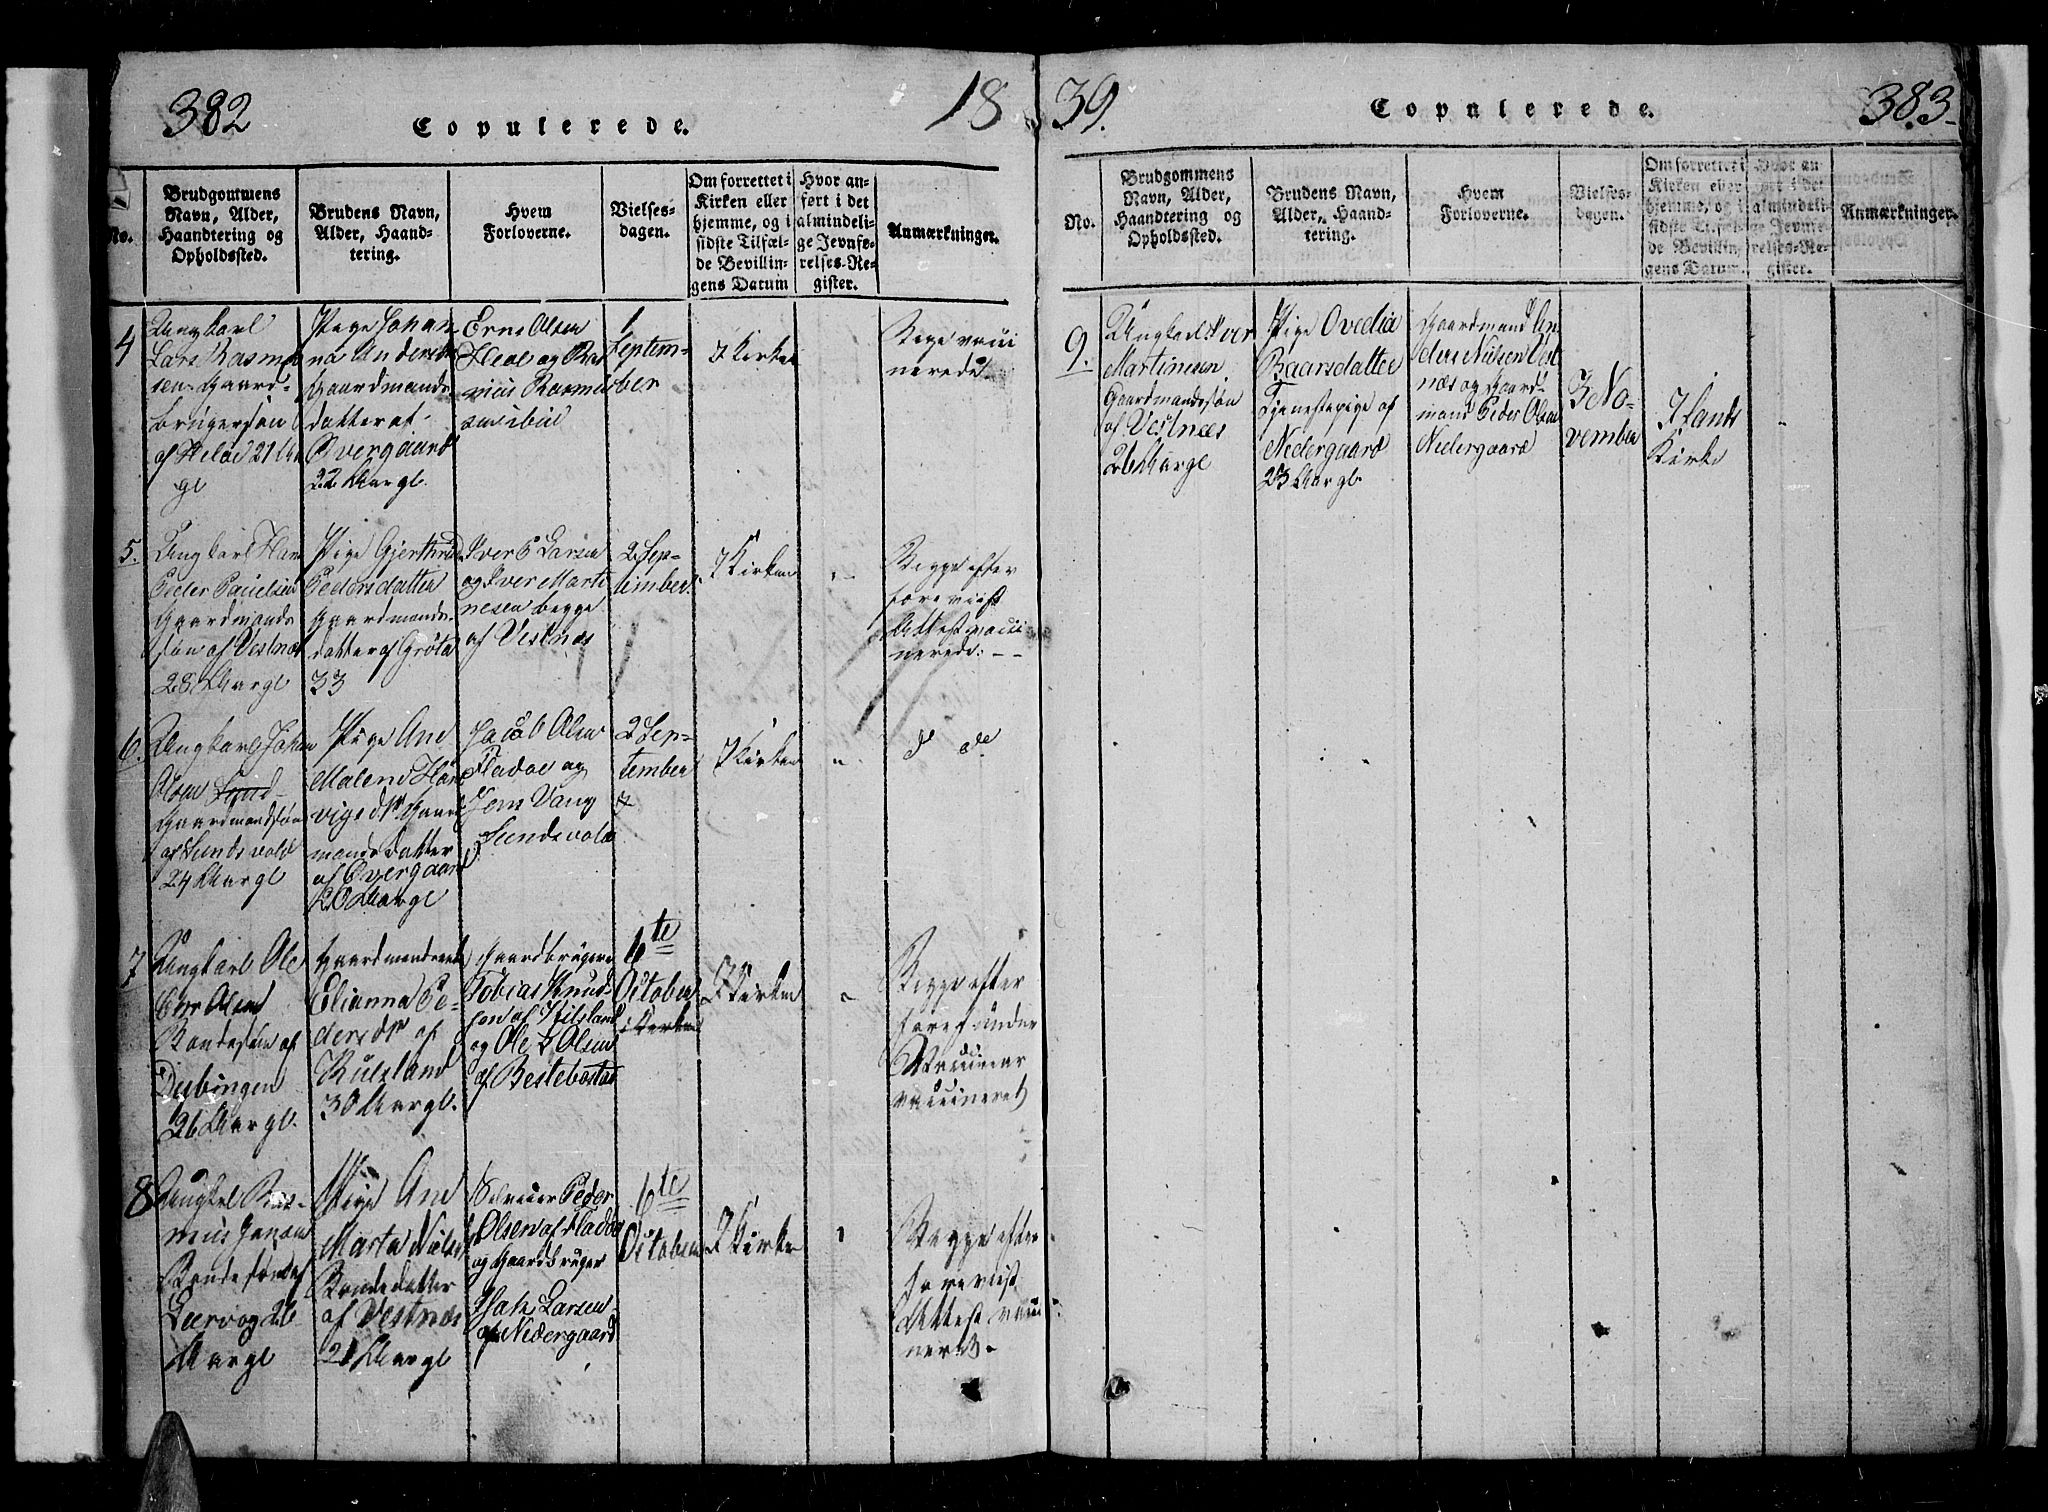 382
Copulerede.
18
No.
Brudgommens
Navn, Alder,
Haandtering og
Opholdssted.
Brudens Navn,
Alder, Haand-
tering.
Hvem
Forloverne.
Vielses-
dagen.
Om forrettet i
Kirken eller
hjemme, og i
sidste Tilfæl-
de Bevillin-
gens Datum
Hvor an-
ført i det
almindeli-
ge Jevnfø-
relses-Re-
gister.
Anmærkninger.
4
Ungkarl
Lars Rasmu
sen Gaard-
brugersøn
af 21 Aar
gl
Pige Johan
na Anders
Gaardmands
datter af
Overgaard
22 Aar gl.
Erne Olsen
og Ras
mus Rasmus
sen ibid
1
Septem-
ber
I Kirken
Begge vacci
nerede
5.
Ungkarl Hans
Peder Paulsen
Gaardmands
søn af Vestnæs
28 Aar gl
Pige Gjertrud
Pedersdatter
Gaardmands-
datter af Grøta
33
Iver P Larsen
og Iver Marti
nesen begge
af Vestnæs
2 Sep-
tember
I Kirken
"
Begge efter
foreviist
Attest vacci
nerede: --
6.
Ungkarl Johan
Olsen Sund
Gaardmandssøn
af Sundsvold
24 Aar gl
Pige Ane
Malene
vigsdtr Gaard
mands datter
af Overgaard
20 Aar gl
Jacob Olsen
Fladøe og
Jens Vang
Sundsvold
2 Sep-
tember
I Kirken
"
do do
7
Ungkarl Ole
Olsen
Bondesøn af
26 Aar gl.
Gaardmandsenke
Elianna Pe-
dersdtr af
30 Aar gl.
Gaardbruger
Tobias Knud-
sen af
og Ole Olsen
af Bestebostad
6te
October
i Kirken
I Kirken
"
Begge efter
vaccineret
8
Ungkl Ras-
mus Jensen
Bondesøn af
26
Aar gl
Pige Ane
Marta Niels
Bondedatter
af Vestnæs
21 Aar gl
Peder
Olsen af Fladøe
og Gaardbruger
Larsen
af Nedergaard
6te
October
I Kirke
Begge efter
foreviist
Attest vacci
neret.
39.
Copulerede.
383
No.
Brudgommens
Navn, Alder,
Haandtering og
Opholdssted.
Brudens Navn,
Alder, Haand-
tering.
Hvem
Forloverne.
Vielses-
dagen.
Om forrettet i
Kirken eller
hjemme, og i
sidste Tilfæl-
de Bevillin-
gens Datum.
Hvor an-
ført i det
almindeli-
ge Jevnfø-
relses-Re-
gister.
Anmærkninger.
9.
Ungkarl Iver
Martinesen
Gaardmandssøn
af Vestnæs
26 Aar gl
Pige Ovedia
Baarsdatter
Tjenestepige af
Nedergaard
23 Aar gl.
Gaardmand An
ders Nilsen Vest
næs og Gaard-
mand Peder Olsen
Nedergaard
3 No-
vember
I Lands
Kirke